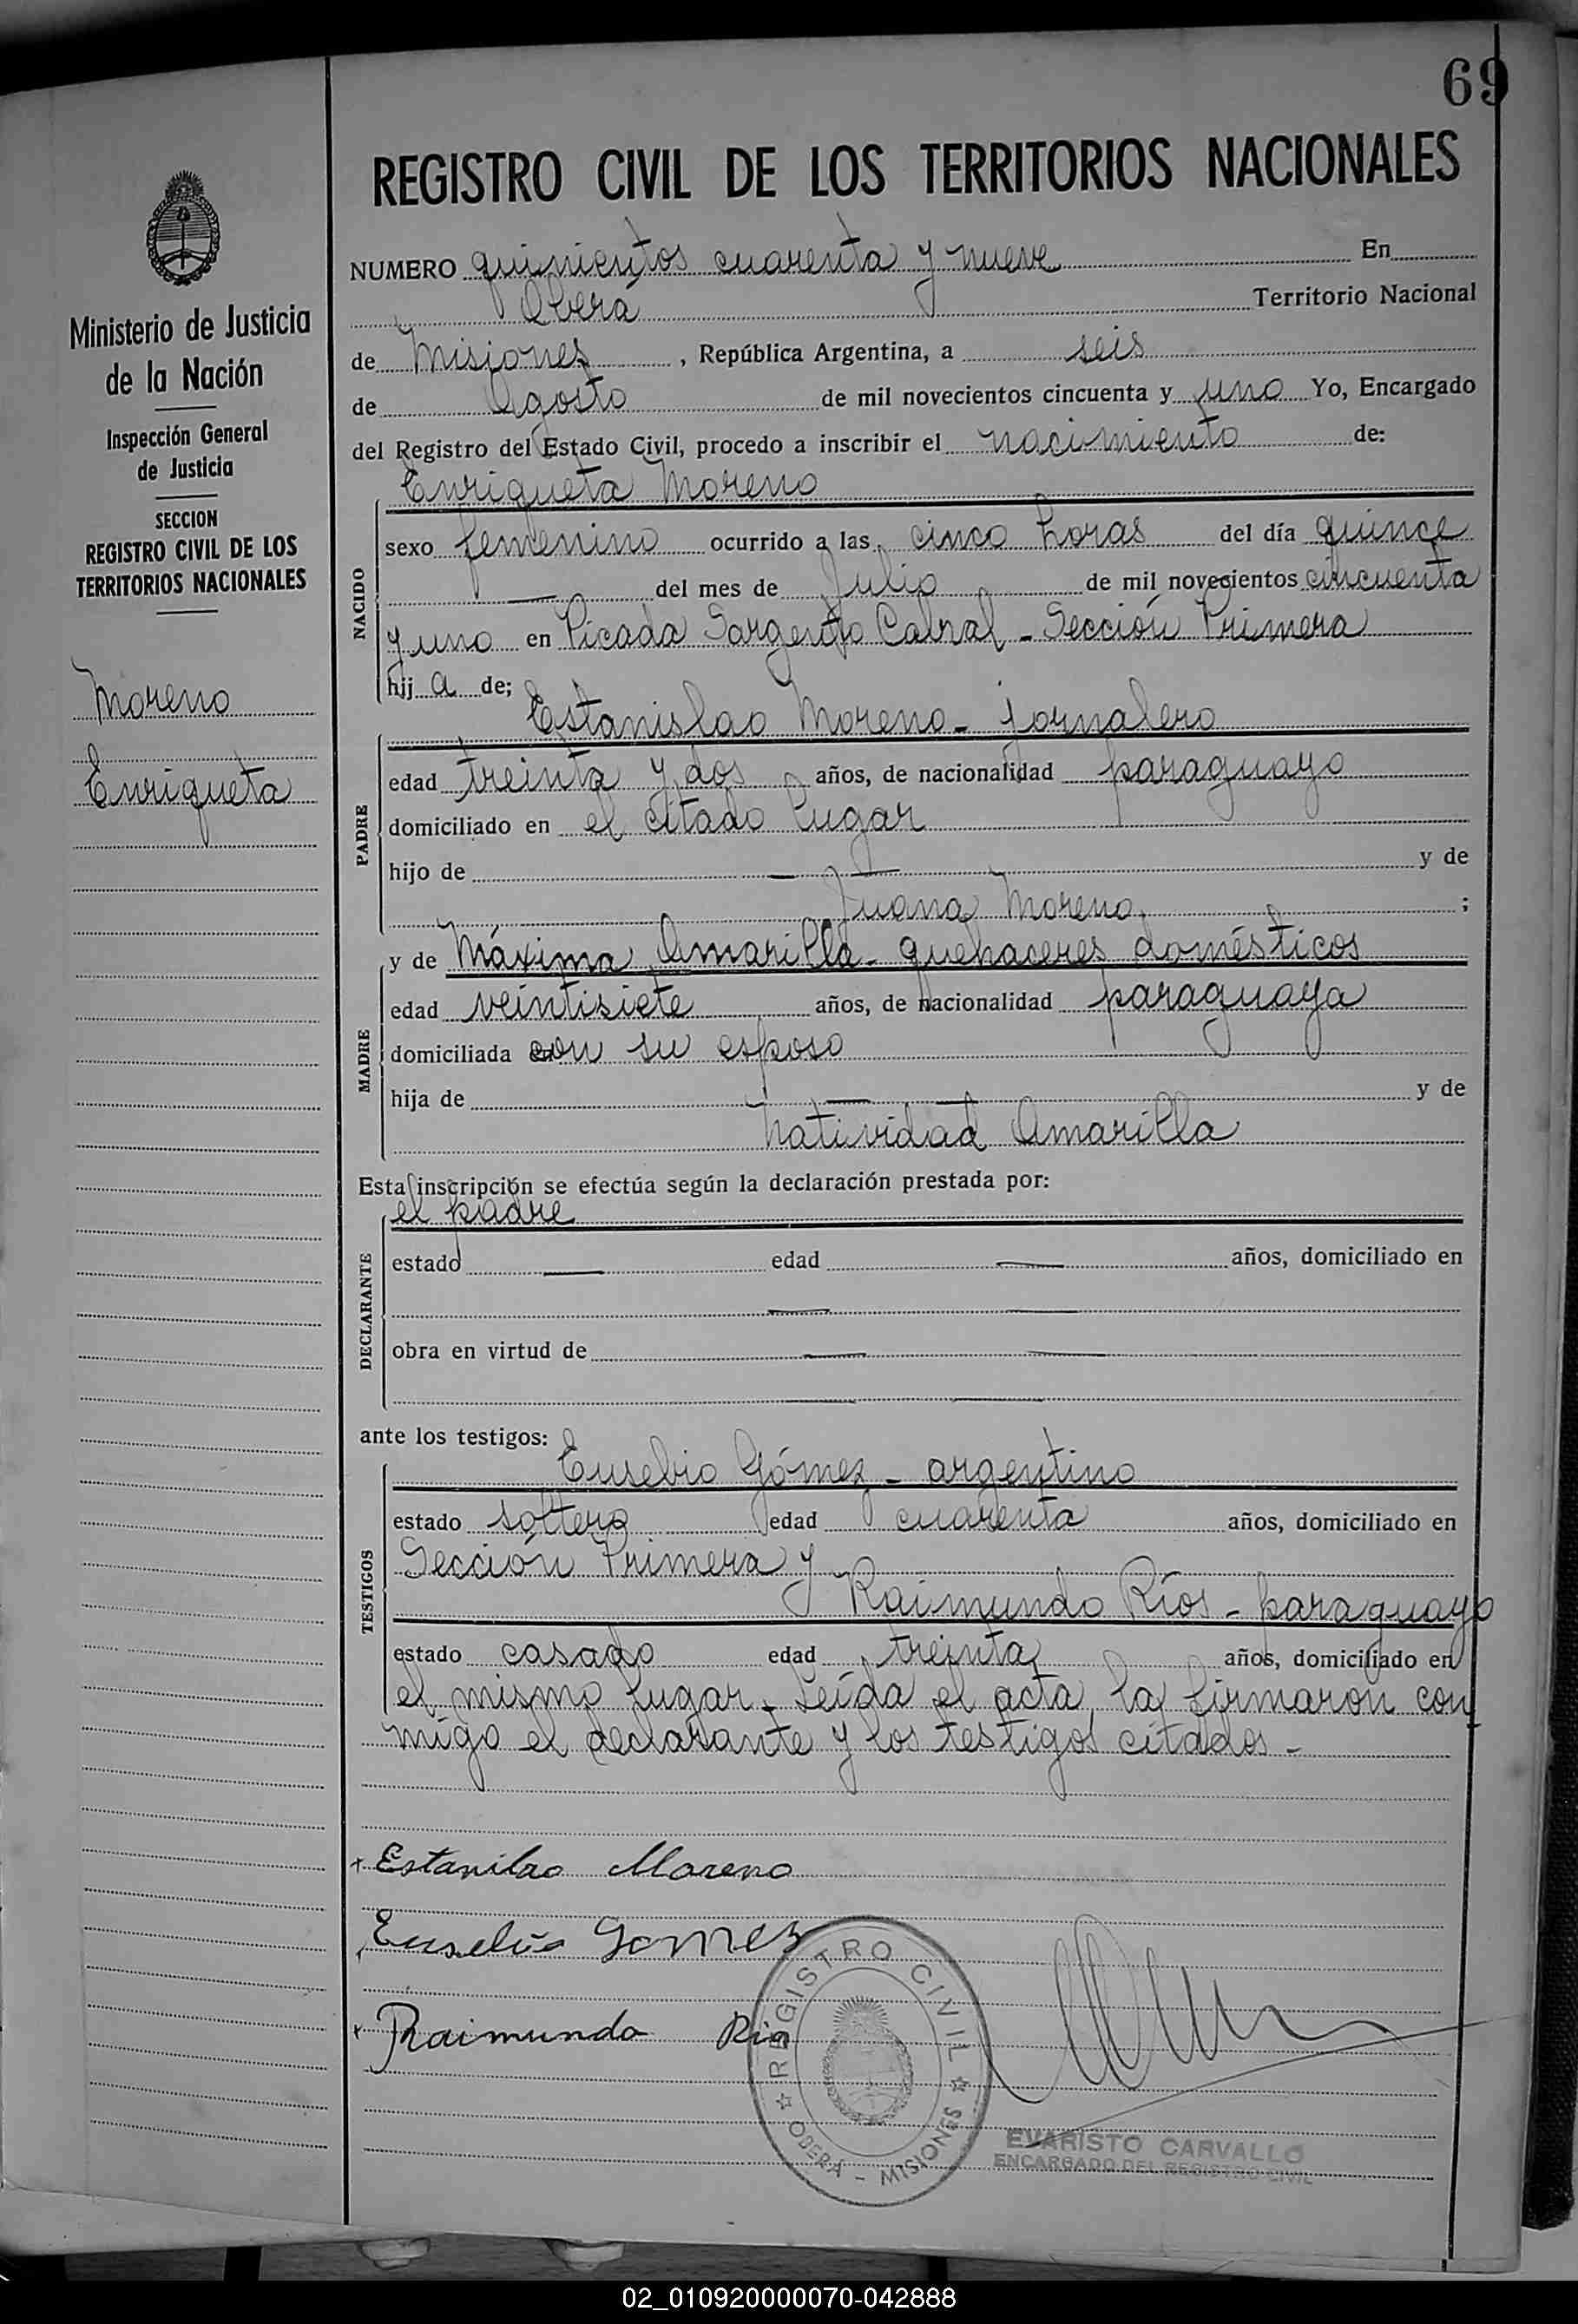 69
REGISTRO CIVIL DE LOS TERRITORIOS NACIONALES
Ministerio de Justicia
de la Nación
Inspección General
de Justicia
SECCION
REGISTRO CIVIL DE LOS
TERRITORIOS NACIONALES
Moreno
Enriqueta
NUMERO quinientos cuarenta y nueve En
Oberá Territorio Nacional
de Misiones, República Argentina, a seis
de Agosto de mil novecientos cincuenta y uno Yo, Encargado
del Registro del Estado Civil, procedo a inscribir el nacimiento de:
Enriqueta Moreno
NACIDO
sexo femenino ocurrido a las cinco horas del día quince
— del mes de Julio de mil novecientos cincuenta
y uno en Picada Sargento Cabral - Sección Primera
hij a de;
Estanislao Moreno - jornalero
PADRE
edad treinta y dos años, de nacionalidad paraguayo
domiciliado en el citado lugar
hijo de — — y de
Juana Moreno ;
y de Máxima Amarilla - quehaceres domésticos
MADRE
edad veintisiete años, de nacionalidad paraguaya
domiciliada con su esposo
hija de — — y de
Natividad Amarilla
Esta inscripción se efectúa según la declaración prestada por:
el padre
DECLARANTE
estado — edad — años, domiciliado en
— —
obra en virtud de — —
— —
ante los testigos:
Eusebio Gómez - argentino
TESTIGOS
estado soltero edad cuarenta años, domiciliado en
Sección Primera y
Raimundo Ríos - paraguayo
estado casado edad treinta años, domiciliado en
el mismo lugar. Leída el acta, la firmaron con
migo el declarante y los testigos citados -
x Estanilao Moreno
Eusebio Gomez
x Raimundo Rio
REGISTRO CIVIL
OBERÁ - MISIONES
EVARISTO CARVALLO
ENCARGADO DEL REGISTRO CIVIL
02_010920000070-042888